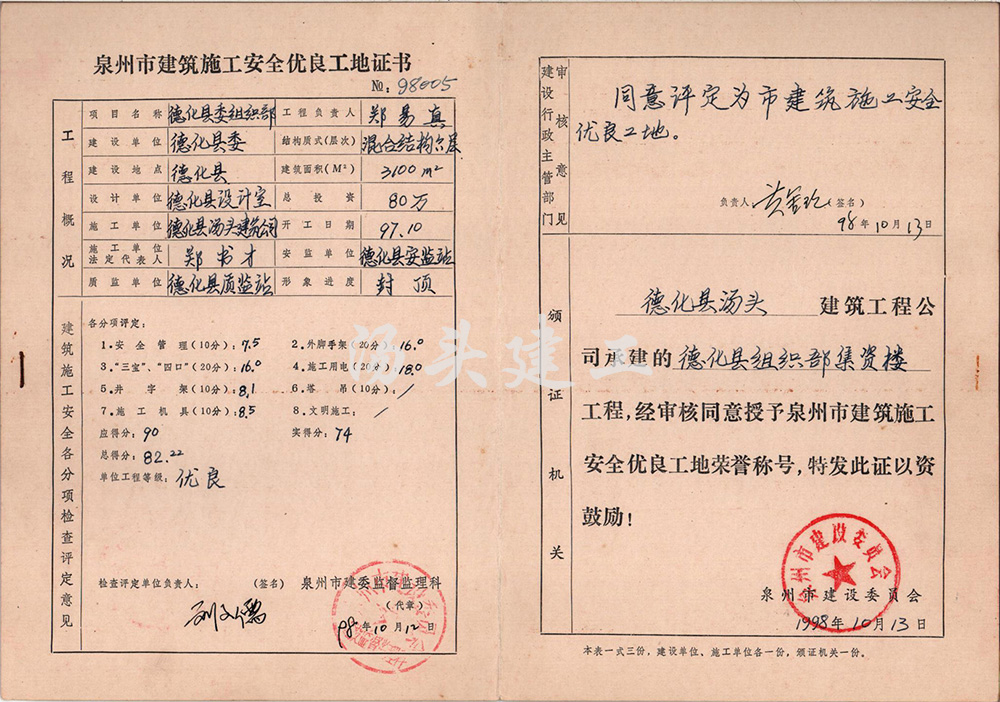 泉州市建筑施工安全优良工地证书
№: 98005
工程概况
项目名称 德化县委组织部 工程负责人 郑易真
建设单位 德化县委 结构质式(层次) 混合结构
建设地点 德化县 建筑面积(M²) 3100m²
设计单位 德化县设计室 总投资 80万
施工单位 德化县汤头建筑公司 开工日期 97.10
施工单位法定代表人 郑书才 安监单位 德化县安监站
质监单位 德化县质监站 形象进度 封顶
建筑施工安全各分项检查评定意见
各分项评定:
1.安全管理(10分): 7.5 2.外脚手架(20分): 16.0
3.“三宝”、“四口”(20分): 16.0 4.施工用电(20分): 18.0
5.井字架(10分): 8.1 6.塔吊(10分): /
7.施工机具(10分): 8.5 8.文明施工: /
应得分: 90 实得分: 74
总得分: 82.22
单位工程等级: 优良
检查评定单位负责人: (签名) 泉州市建委监督监理科
(代章)
98年10月12日
建设行政主管部门审核意见
同意评定为市建筑施工安全
优良工地。
负责人 (签名)
98年10月13日
颁证机关
德化县汤头 建筑工程公
司承建的 德化县组织部集资楼
工程,经审核同意授予泉州市建筑施工
安全优良工地荣誉称号,特发此证以资
鼓励!
泉州市建设委员会
泉州市建设委员会
1998年10月13日
本表一式三份,建设单位、施工单位各一份,颁证机关一份。
汤头建工